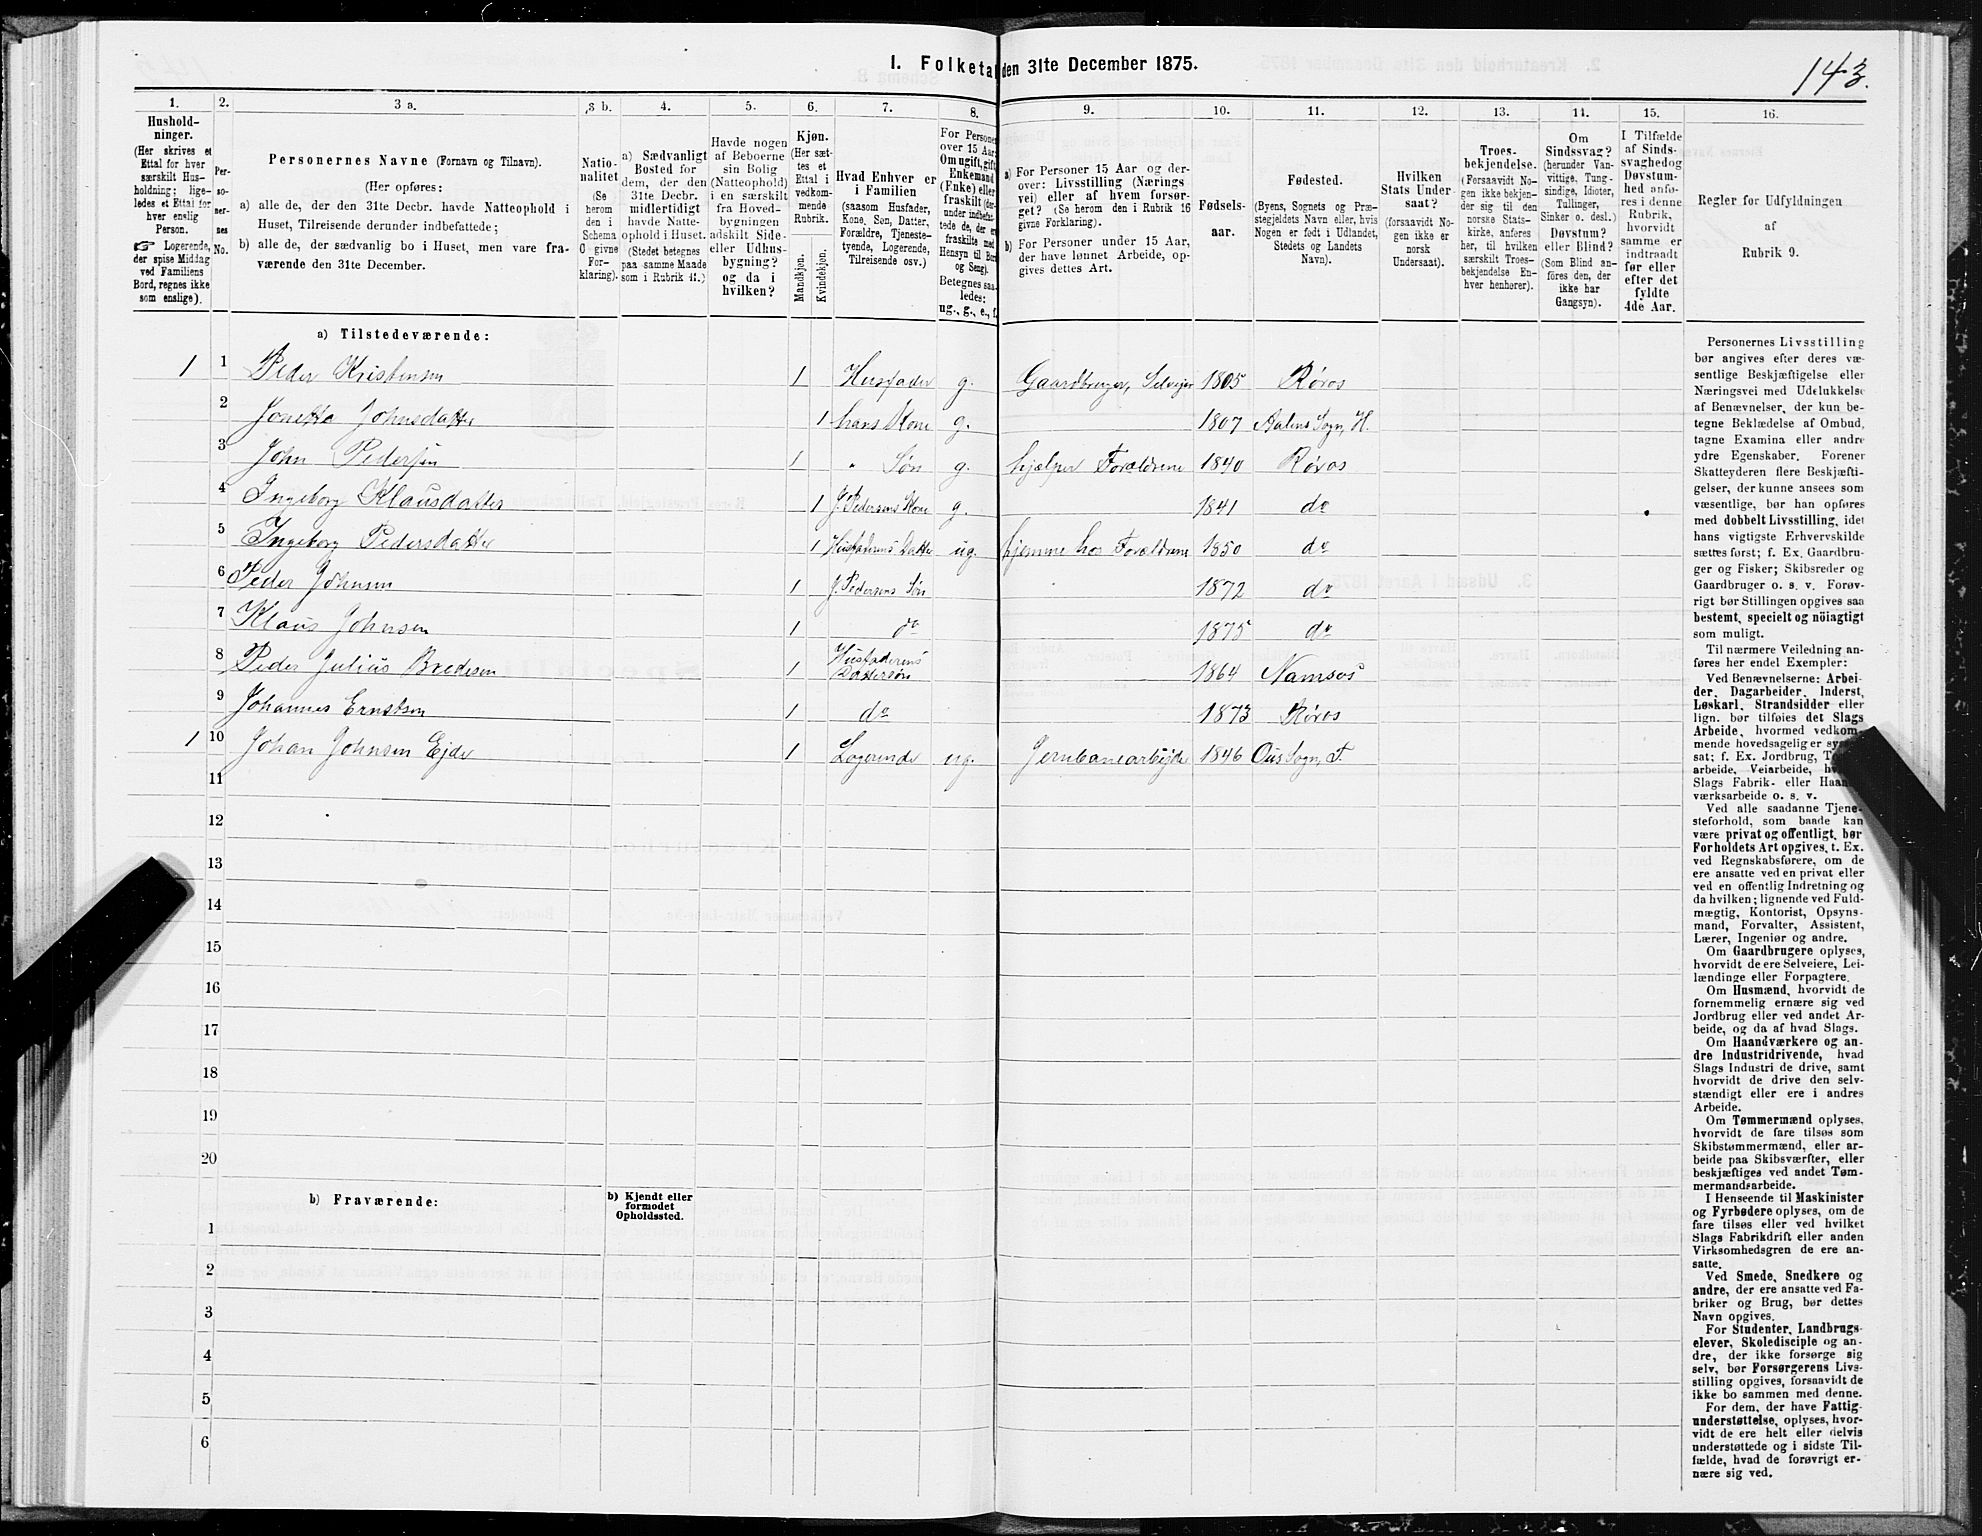 143.
I. Folketa den 31te December 1875.
1.
Hushold-
ninger.
(Her skrives et
Ettal for hver
særskilt Hus-
holdning; lige-
ledes et Ettal for
hver enslig
Person.
☞ Logerende,
der spise Middag
ved Familiens
Bord, regnes ikke
som enslige).
2.
Per-
so-
ner-
nes
No.
3 a.
Personernes Navne (Fornavn og Tilnavn).
(Her opføres:
a) alle de, der den 31te Decbr. havde Natteophold i
Huset, Tilreisende derunder indbefattede;
b) alle de, der sædvanlig bo i Huset, men vare fra-
værende den 31te December.
3 b.
Natio-
nalitet
(Se
herom
den i
Schema
O givne
For-
klaring).
4.
a) Sædvanligt
Bosted for
dem, der den
31te Decbr.
midlertidigt
havde Natte-
ophold i Huset.
(Stedet betegnes
paa samme Maade
som i Rubrik 11.)
5.
Havde nogen
af Beboerne
sin Bolig
(Natteophold)
i en særskilt
fra Hoved-
bygningen
adskilt Side-
eller Udhus-
bygning?
og da i
hvilken?
6.
Kjøn.
(Her sæt-
tes et
Ettal i
vedkom-
mende
Rubrik.
Mandkjøn.
Kvindekjøn.
7.
Hvad Enhver er
i Familien
(saasom Husfader,
Kone, Søn, Datter,
Forældre, Tjeneste-
tyende, Logerende,
Tilreisende osv.)
8.
For Personer
over 15 Aar:
Om ugift, gift,
Enkemand
(Enke) eller
fraskilt (der-
under indbefat-
tede de, der ere
fraskilte med
Hensyn til Bord
og Seng).
Betegnes saa-
ledes:
ug., g., e., f.
9.
a) For Personer 15 Aar og der-
over: Livsstilling (Nærings-
vei) eller af hvem forsør-
get? (Se herom den i Rubrik 16
givne Forklaring).
b) For Personer under 15 Aar,
der have lønnet Arbeide, op-
gives dettes Art.
10.
Fødsels-
aar.
11.
Fødested.
(Byens, Sognets og Præ-
stegjeldets Navn eller, hvis
Nogen er født i Udlandet,
Stedets og Landets
Navn).
12.
Hvilken
Stats Under-
saat?
(forsaavidt No-
gen ikke er
norsk
Undersaat).
13.
Troes-
bekjendelse.
(Forsaavidt No-
gen ikke bekjen-
der sig til den
norske Stats-
kirke, anføres
her, til hvilken
særskilt Troes-
bekjendelse En-
hver henhører).
14.
Om
Sindssvag?
(herunder Van-
vittige, Tung-
sindige, Idioter,
Tullinger,
Sinker o. desl.)
Døvstum?
eller Blind?
(Som Blind an-
føres den, der
ikke har
Gangsyn).
15.
I Tilfælde
af Sinds-
svaghed og
Døvstum-
hed anfø-
res i denne
Rubrik,
hvorvidt
samme er
indtraadt
før eller
efter det
fyldte
4de Aar.
16.
Regler for Udfyldningen
af
Rubrik 9.
a) Tilstedeværende:
1 1 Peder Kristensen 1 Husfader g. Gaardbruger, Selveier 1805 Røros
2 Jonetta Johnsdatter 1 hans Kone g. 1807 Aalens Sogn, H.
3 John Pedersen 1 " Søn g. hjelper Forældrene 1840 Røros
4 Ingeborg Klausdatter 1 J. Pedersens Kone g. 1841 do
5 Ingeborg Pedersdatter 1 Husfaderens Datter ug. hjemme hos Forældrene 1850 do
6 Peder Johnsen 1 J. Pedersens Søn 1872 do
7 Klaus Johnsen 1 do 1875 do
8 Peder Julius Bredesen 1 Husfaderens Dattersøn 1864 Namsos
9 Johannes Ernstsen 1 do 1873 Røros
1 10 Johan Johnsen Ejde 1 Logerende ug. Jernbanearbejder 1846 Ous Sogn, T.
11
12
13
14
15
16
17
18
19
20
b) Fraværende:
b) Kjendt eller
formodet
Opholdssted.
1
2
3
4
5
6
Personernes Livsstilling
bør angives efter deres væ-
sentlige Beskjæftigelse eller
Næringsvei med Udelukkelse
af Benævnelser, der kun be-
tegne Beklædelse af Ombud,
tagne Examina eller andre
ydre Egenskaber. Forener
Skatteyderen flere Beskjæfti-
gelser, der kunne ansees som
væsentlige, bør han opføres
med dobbelt Livsstilling, idet
hans vigtigste Erhvervskilde
sættes først; f. Ex. Gaardbru-
ger og Fisker; Skibsreder og
Gaardbruger o. s. v. Forøv-
rigt bør Stillingen opgives saa
bestemt, specielt og nöiagtigt
som muligt.
Til nærmere Veiledning an-
føres her endel Exempler:
Ved Benævnelserne: Arbei-
der, Dagarbeider, Inderst,
Løskarl, Strandsidder eller
lign. bør tilføies det Slags
Arbeide, hvormed vedkom-
mende hovedsagelig er
sat; f. Ex. Jordbrug,
arbeide, Veiarbeide,
Slags Fabrik- eller
værksarbeide o. s. v.
Ved alle saadanne Tjene-
steforhold, som baade kan
være privat og offentligt, bør
Forholdets Art opgives, t. Ex.
ved Regnskabsførere, om de
ere ansatte ved en privat eller
ved en offentlig Indretning og
da hvilken; lignende ved Fuld-
mægtig, Kontorist, Opsyns-
mand, Forvalter, Assistent,
Lærer, Ingeniør og andre.
Om Gaardbrugere oplyses,
hvorvidt de ere Selveiere, Lei-
lændinge eller Forpagtere.
Om Husmænd, hvorvidt de
fornemmelig ernære sig ved
Jordbrug eller ved andet Ar-
beide, og da af hvad Slags.
Om Haandværkere og an-
dre Industridrivende, hvad
Slags Industri de drive, samt
hvorvidt de drive den selv-
stændigt eller ere i andres
Arbeide.
Om Tømmermænd oplyses,
hvorvidt de fare tilsøs som
Skibstømmermænd, eller ar-
beide paa Skibsværfter, eller
beskjæftiges ved andet Tøm-
mermandsarbeide.
I Henseende til Maskinister
og Fyrbødere oplyses, om de
fare tilsøs eller ved hvilket
Slags Fabrikdrift eller anden
Virksomhedsgren de ere an-
satte.
Ved Smede, Snedkere og
andre, der ere ansatte ved Fa-
briker og Brug, bør dettes
Navn opgives.
For Studenter, Landbrugs-
elever, Skoledisciple og an-
dre, der ikke forsørge sig
selv, bør Forsørgerens Livs-
stilling opgives, forsaavidt de
ikke bo sammen med denne.
For dem, der have Fattig-
understøttelse, oplyses, hvor-
vidt de ere helt eller delvis
understøttede og i sidste Til-
fælde, hvad de forøvrigt er-
nære sig ved.